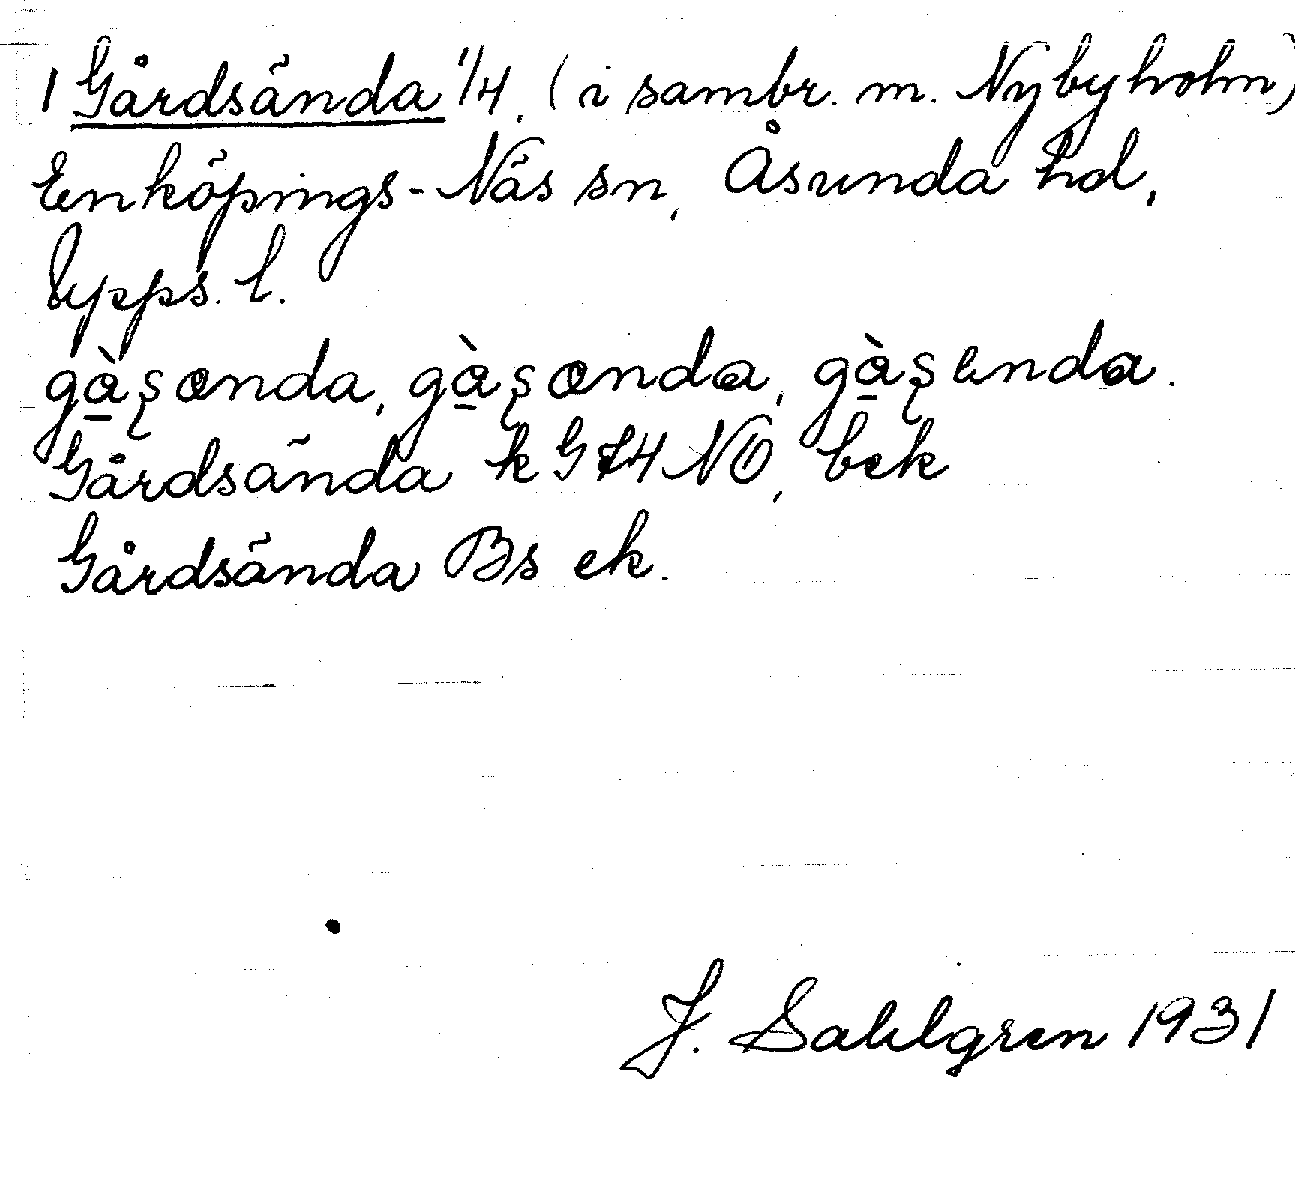 1 Gårdsända 1/4. (i sambr. m. Nybyholm)
Enköpings-Näs sn, Åsunda hd,
Upps. l.
gàʂænda, gàʂænda, gàʂenda.
Gårdsända k G 74 NO, bek
Gårdsända Bs ek.
J. Sahlgren 1931